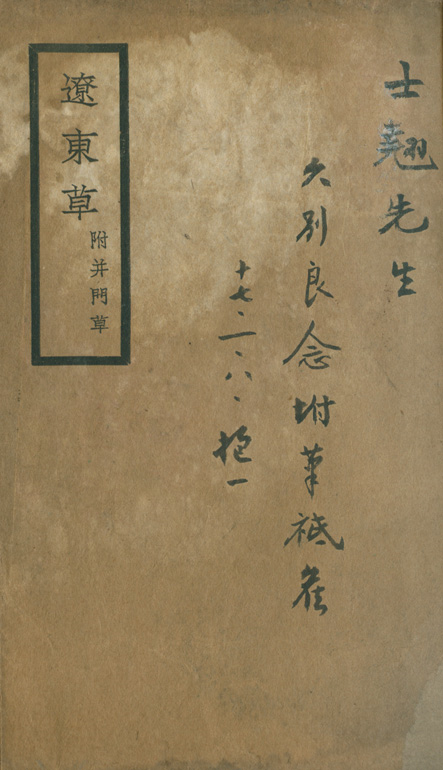 士翹先生
久別良念坿筆祗雀
十七、一、八、抱一
遼東草
附并門草